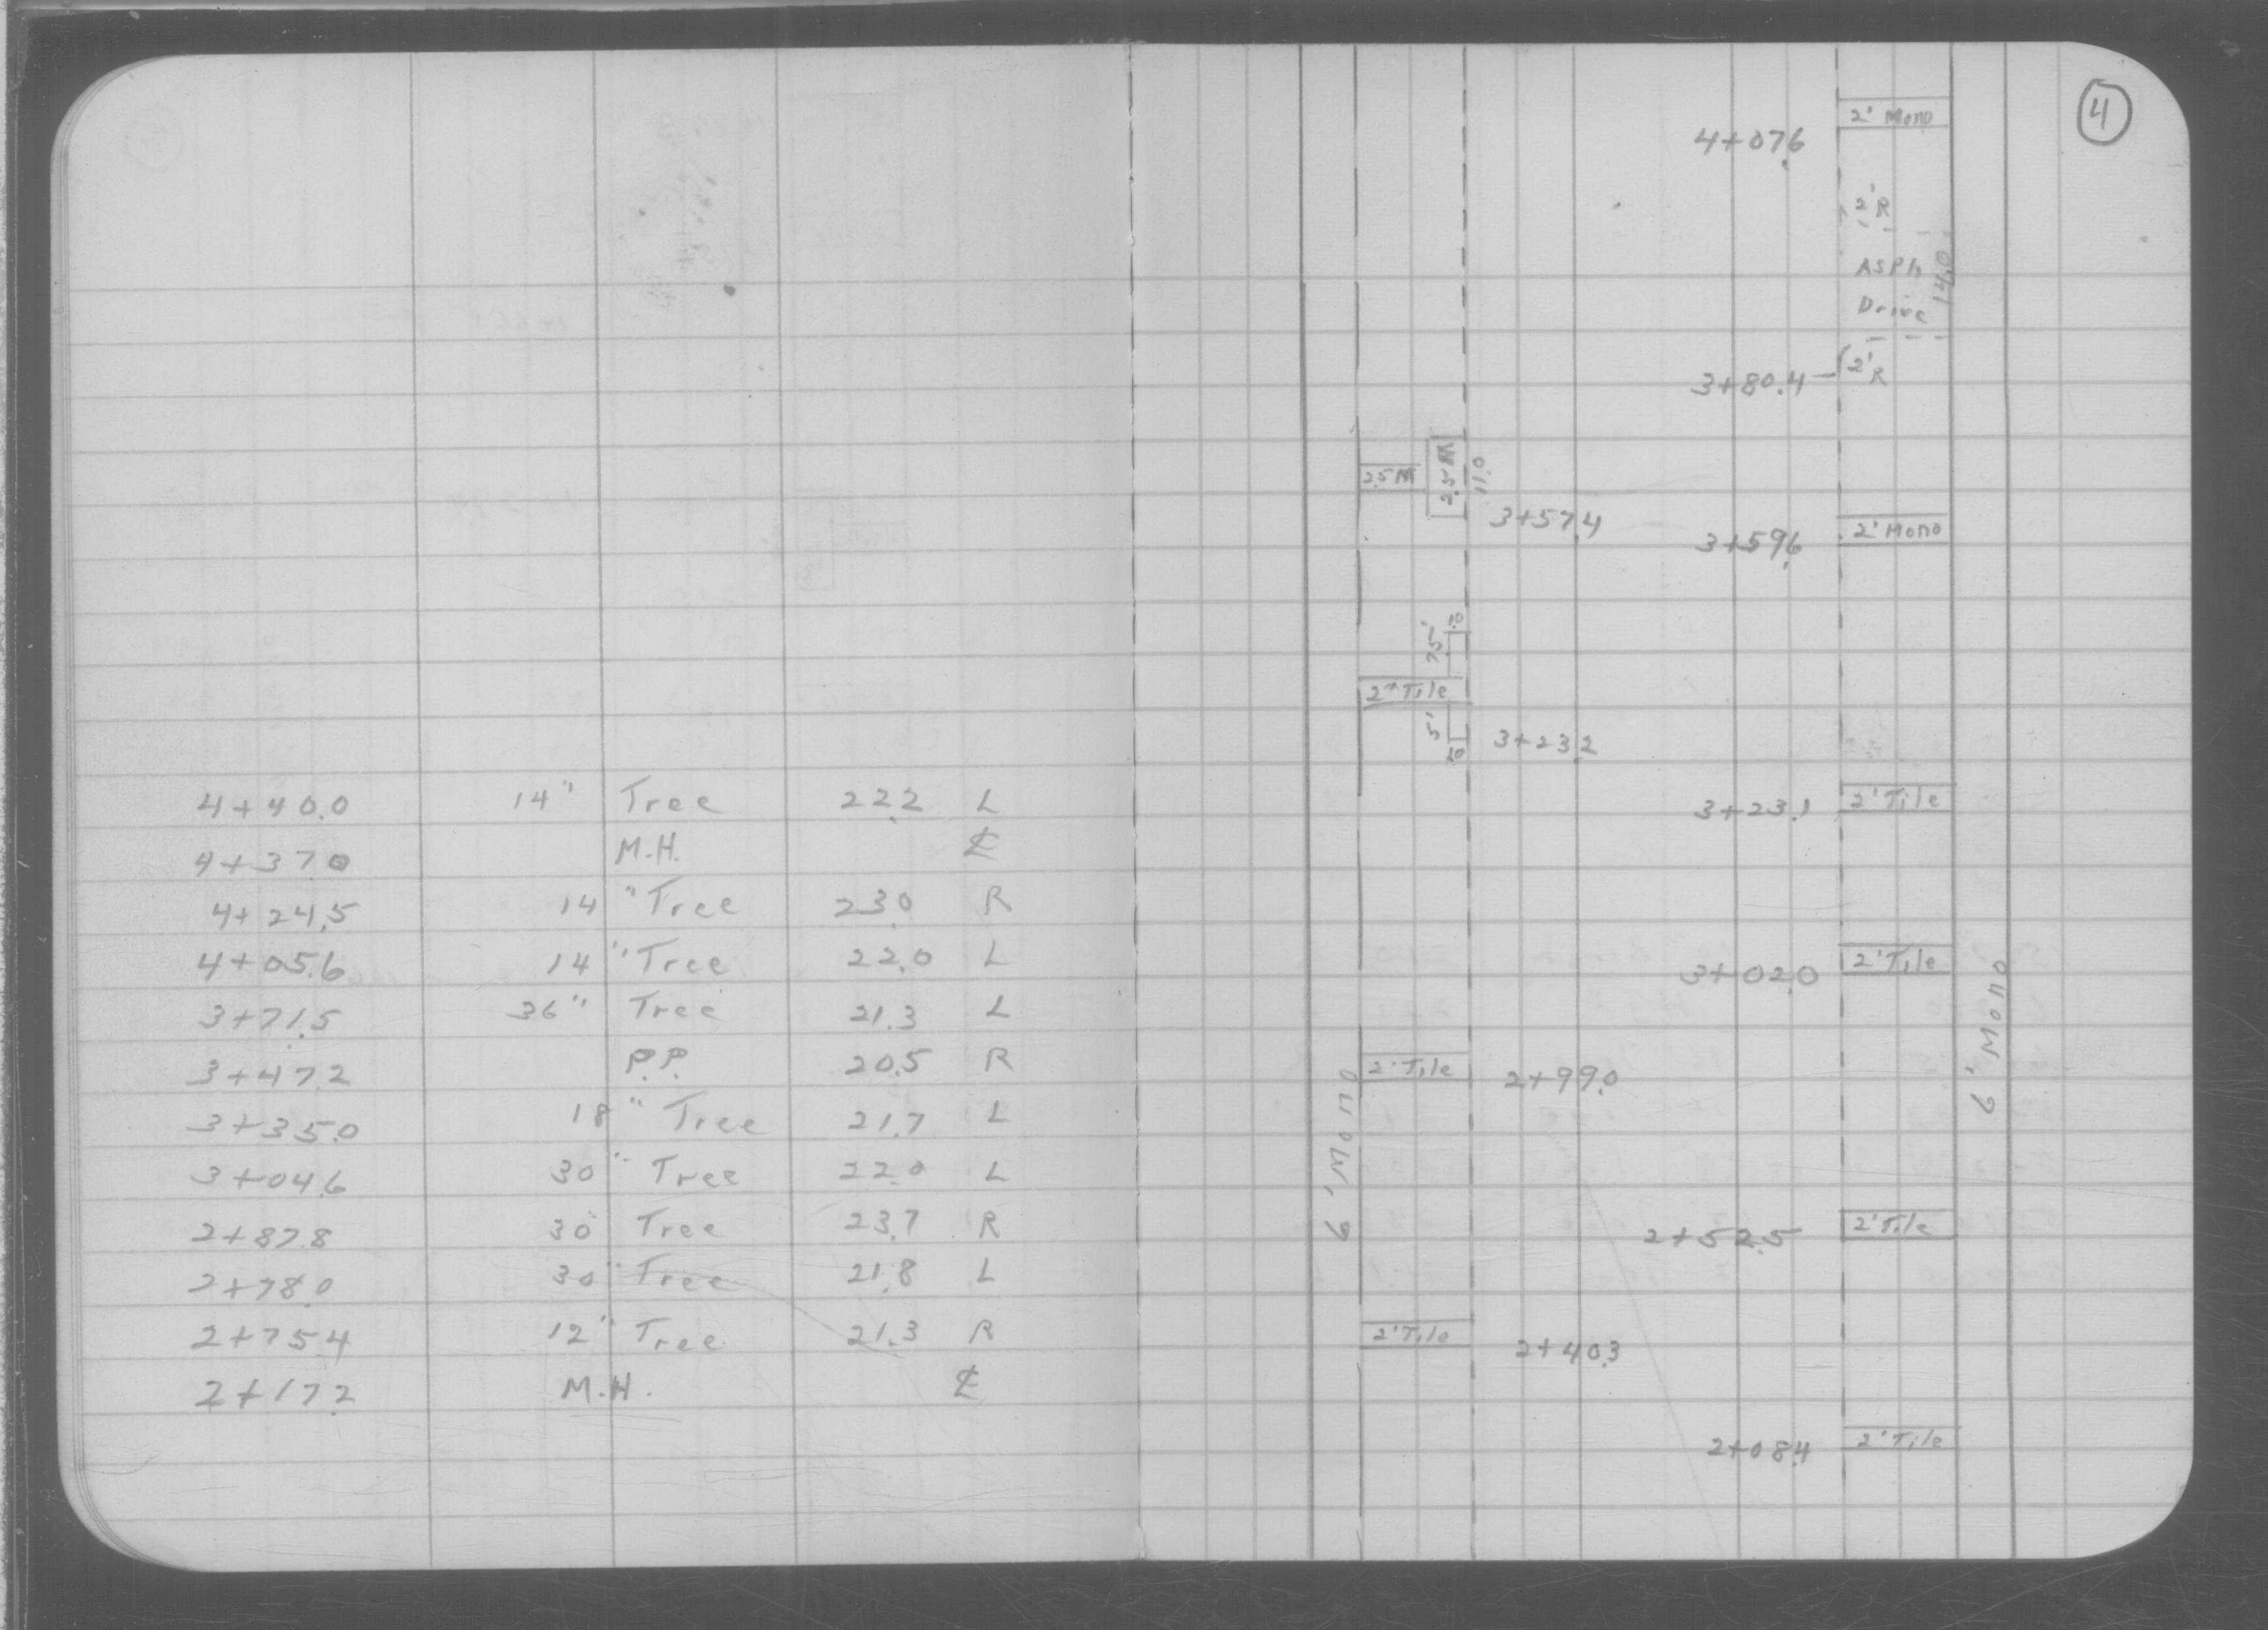 4+40.0 14" Tree 22.2 L
4+37.0 M.H. ℄
4+24.5 14" Tree 23.0 R
4+05.6 14" Tree 22.0 L
3+71.5 36" Tree 21.3 L
3+47.2 P.P. 20.5 R
3+35.0 18" Tree 21.7 L
3+04.6 30" Tree 22.0 L
2+87.8 30" Tree 23.7 R
2+78.0 30" Tree 21.8 L
2+75.4 12" Tree 21.3 R
2+17.2 M.H. ℄
4
4+07.6 2' Mono
2'R
Asph
Drive
14.0
3+80.4 2'R
2.5 M 2.5 M 11.0
3+57.4
3+59.6 2' Mono
7.5' 1.0
2' Tile
5' 1.0 3+23.2
3+23.1 2' Tile
3+02.0 2' Tile
6' Mono
2' Tile 2+99.0
6' Mono
2+52.5 2' Tile
2' Tile 2+40.3
2+08.4 2' Tile